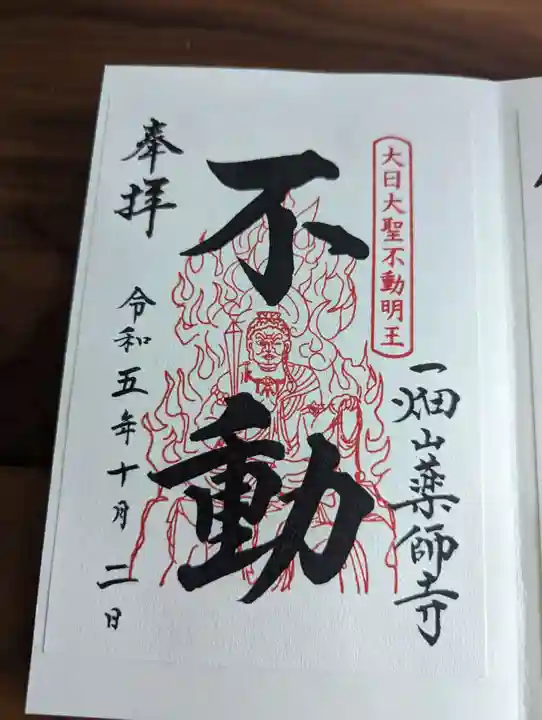 大日大聖不動明王
一畑山薬師寺
不動
奉拝
令和五年十月二日